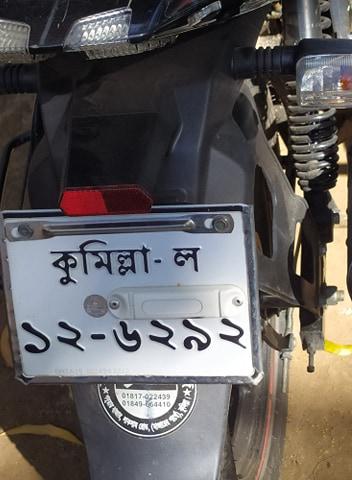 কুমিল্লা- ল
১২-৬২৯২
01817-022439
01849-664410